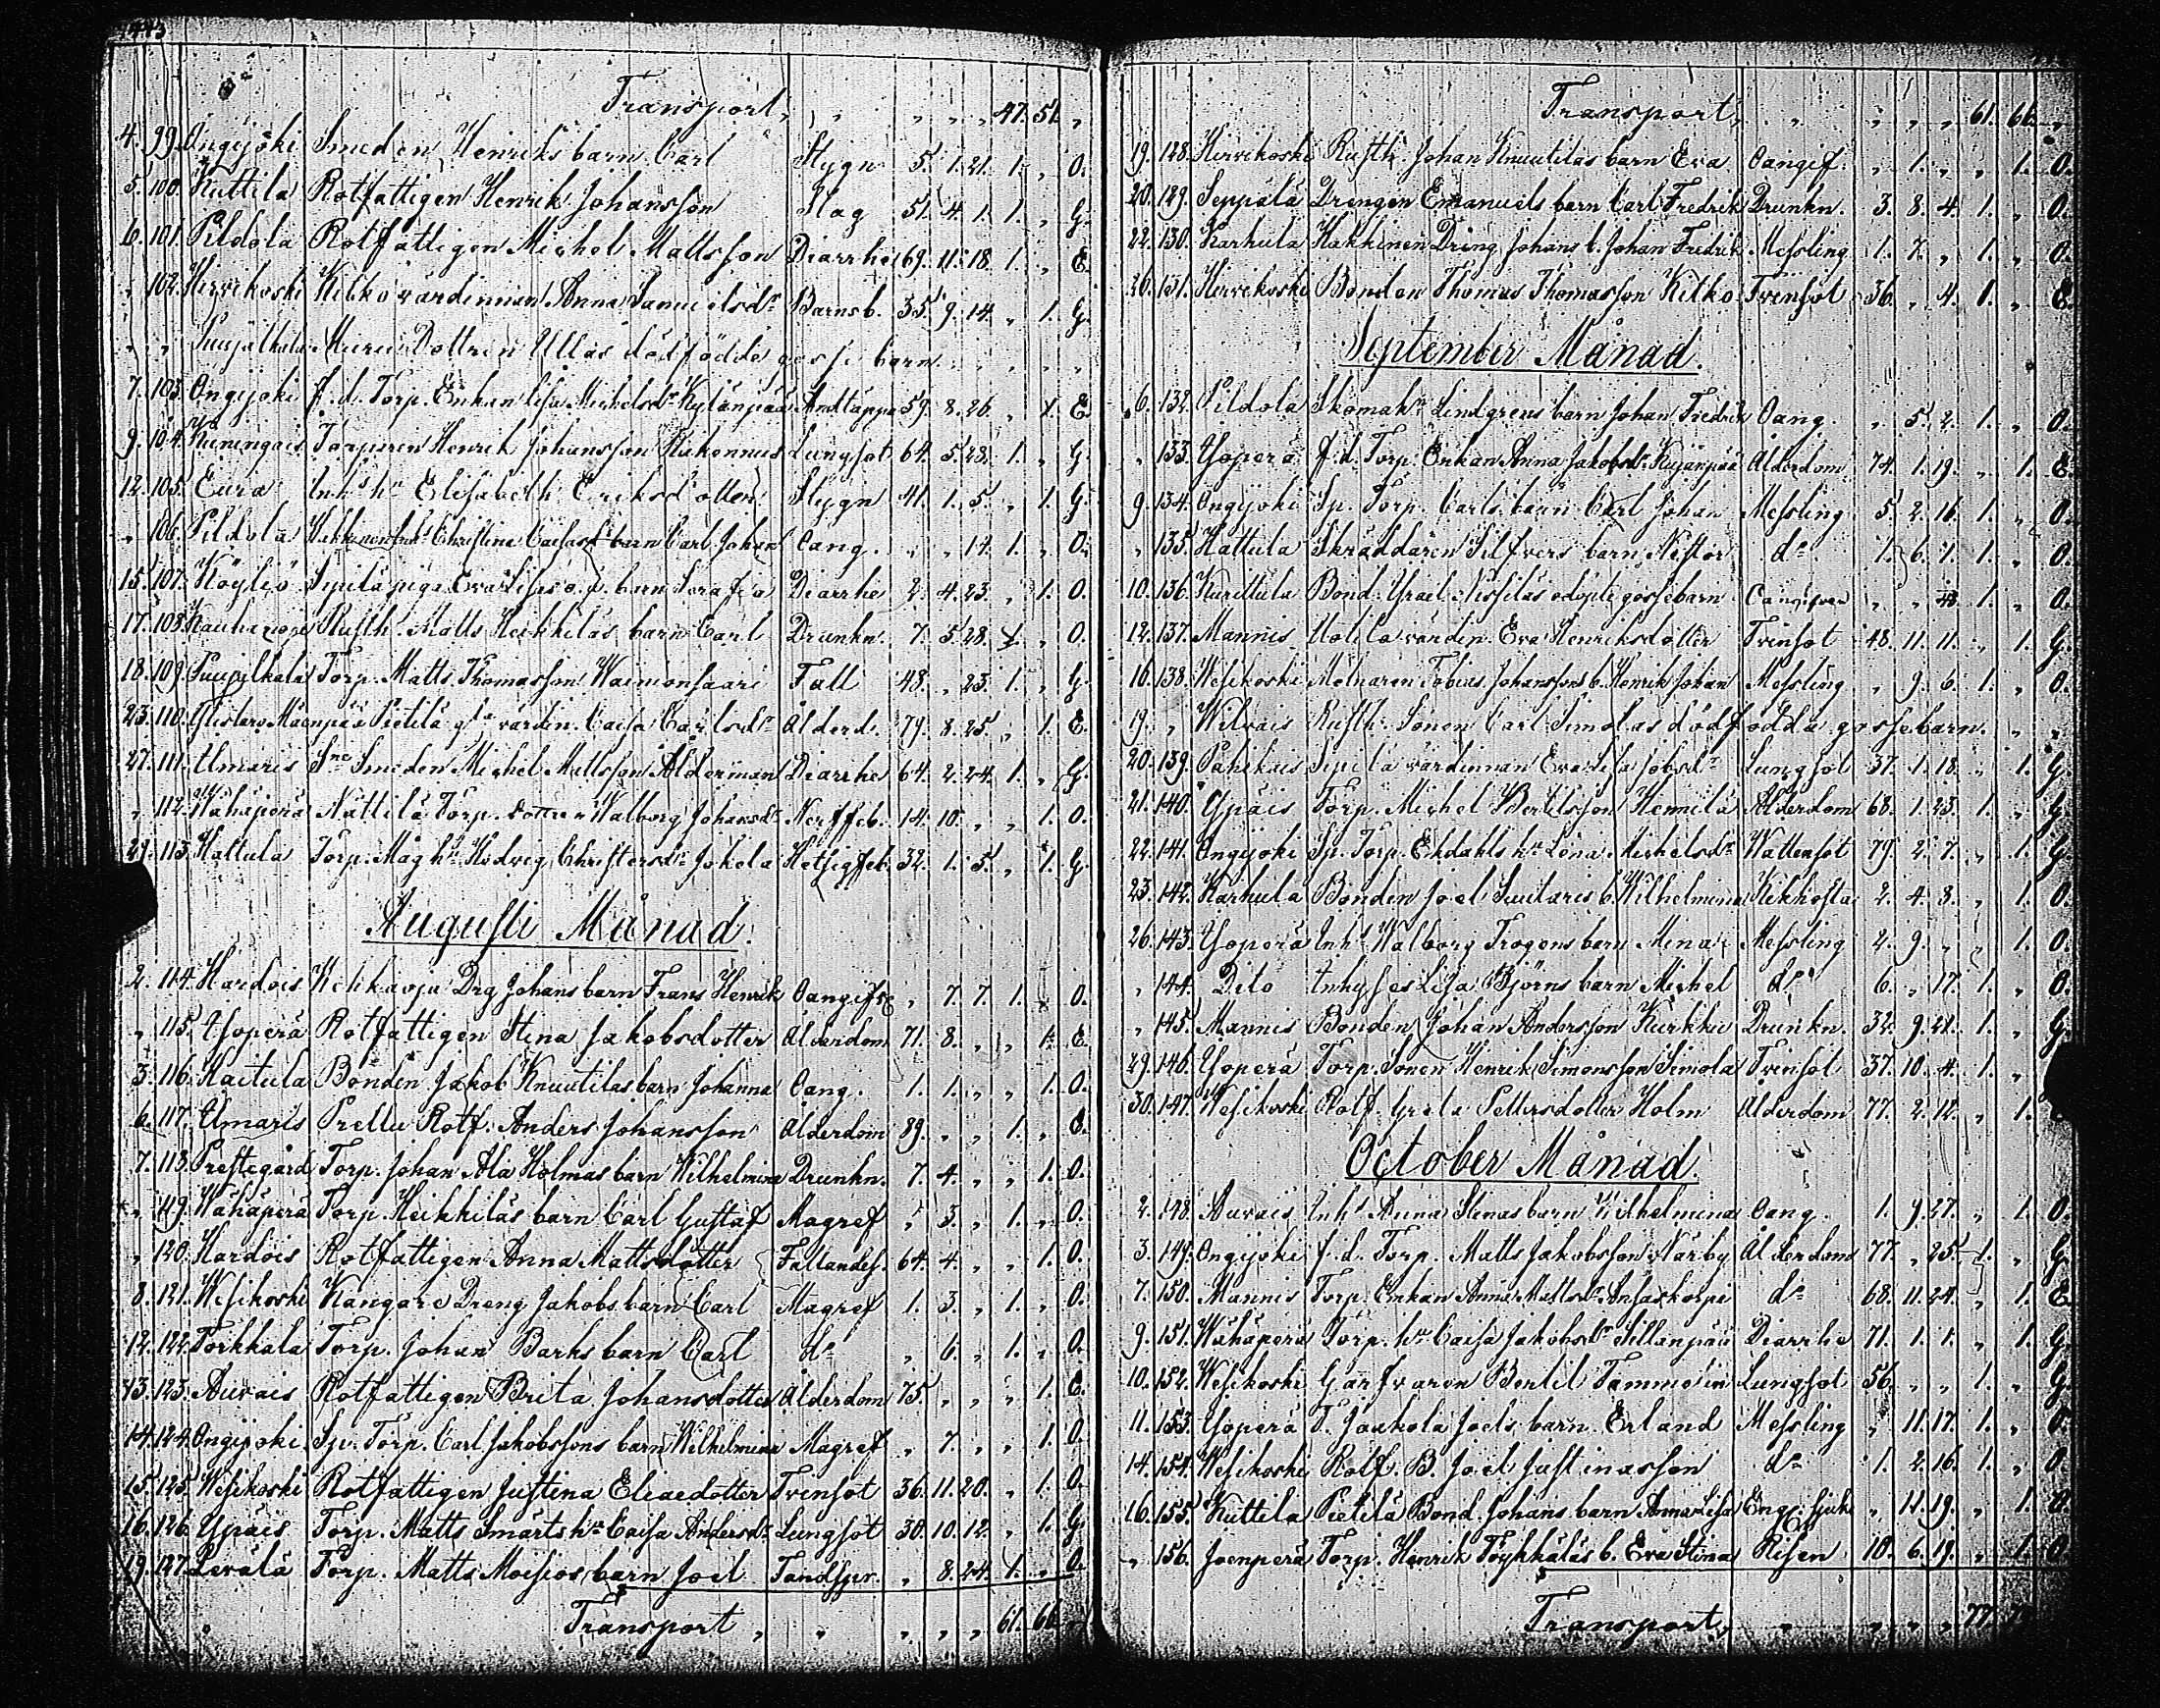 Transport „ „ „ „ „ 47. 51. „
4. 99. Ongijoki Smeden Henriks barn Carl Stygn 5. 1. 21. 1. „ O.
5. 100. Kuttila Rotfattigen Henrik Johansson Slag 51. 4. 1. 1. „ G.
6. 101. Pildola Rotfattigen Michel Mattsson Diarrhe 69. 11. 18. 1. „ E.
„ 102. Hirvikoski Kitko värdinnan Anna Samuelsdr Barnsb. 35. 9. 14. „ 1. G.
„ „ Suujälkala Dottren Ullas dödfödde gosse barn „ „ „ „ „
7. 103. Ongijoki f.d. Torp. Enkan Lisa Michelsdr Kylänpää Andtäppa 59. 8. 26. „ 1. E
9. 104. Torparen Henrik Johansson Lungsot 64. 5. 28. 1. „ G.
12. 105. Eura Inh.s hu Elisabeth Eriksdotter Stygn 41. 1. 5. „ 1. G.
„ 106. Pildola Christina Caisas barn Carl Johan Oang. „ „ 14. 1. „ O.
15. 107. Köyliö piga Eva Lisas o.ä. barn Serafia Diarrhe 2. 4. 23. „ 1. O.
17. 108. Kauhanoja Rusth. Matts Heikkiläs barn Carl Drunkn. 7. 5. 28. 1. „ O.
18. 109. Torp. Matts Thomasson Wainionsaari Fall 48. „ 23. 1. „ G.
23. 110. Maenpää Pietilä gla värdin. Caisa Carlsdr Ålderd. 79. 8. 25. „ 1. E.
27. 111. Utmaris Sne Smeden Michel Mattsson Alderman Diarrhe 64. 2. 24. 1. „ G.
„ 112. Wähäperä Nattila Torp. dottren Walborg Johansdr Nerffeb. 14. 10. „ „ 1. O.
29. 113. Hattula Torp. Måg hu Hedvig Christersdr Jokela Hetsigfeb. 32. 1. 5. „ 1. G.
Augusti Månad.
2. 114. Kardois Drg Johans barn Frans Henrik Oangifv „ 7. 7. 1. „ O.
„ 115. Yloperä Rotfattigen Stina Jakobsdotter Ålderdom 71. 8. „ „ 1. E.
3. 116. Haitula Bonden Jakob Knuutilas barn Johanna Oang. 1. 1. „ „ 1. O.
6. 117. Utmaris Prellu Rotf. Anders Johansson Ålderdom 89. „ „ 1. „ E.
7. 118. Prestegård Torp. Johan Ala Holmas barn Wilhelmina Drunkn. 7. 4. „ „ 1. O.
„ 119. Wähäperä Torp. Heikkiläs barn Carl Gustaf Magref „ 3. „ 1. „ O.
„ 120. Kardois Rotfattigen Anna Mattsdotter Fallandes. 64. 4. „ „ 1. O.
8. 121. Wesikoski Kangare Dreng Jakobs barn Carl Magref 1. 3. „ 1. „ O.
12. 122. Torkkala Torp. Johan Barks barn Carl do „ 6. „ 1. „ O.
13. 123. Auvais Rotfattigen Brita Johansdotter Ålderdom 75. „ „ „ 1. E.
14. 124. Ongijoki Sp. Torp. Carl Jakobssons barn Wilhelmina Magref „ 7. „ „ 1. O.
15. 125. Wesikoski Rotfattigen Justina Eliaedotter Tvinsot 36. 11. 20. „ 1. O.
16. 126. Ypäis Torp. Matts Smärts hu Caisa Andersdr Lungsot 30. 10. 12. „ 1. G.
19. 127. Levälä Torp. Matts Moisios barn Joel Tandspr. „ 8. 24. 1. „ O.
Transport „ „ „ „ „ 61. 66. „
Transport „ „ „ „ „ 61. 66. „
19. 128. Hirvikoski Rusth. Johan Knuutilas barn Eva Oangif. „ 1. „ „ 1. O.
20. 129. Seppälä Drengen Emanuels barn Carl Fredrik Drunkn. 3. 8. 4. 1. „ O.
22. 130. Karhula Hakkinen Dräng Johans b. Johan Fredrik Messling 1. 7. „ 1. „ O.
26. 131. Hirvikoski Bonden Thomas Thomasson Kitko Tvinsot 36. „ 4. 1. „ E
September Månad.
6. 132. Pildola Skomakn Lindgrens barn Johan Fredrik Oang. „ 5. 2. 1. „ O.
„ 133. Yloperä f.d. Torp. Enkan Anna Jakobsdr Kujanpää Ålderdom 74. 1. 19. „ 1. E
9. 134. Ongijoki Sp. Torp. Carls barn Carl Johan Messling 5. 2. 16. 1. „ O.
„ 135. Hattula Skräddaren Silfvers barn Nestor do 1. 6. 1. 1. „ O.
10. 136. Kurittula Bond. Israel Nissilas odöpte gossebarn Oangifven „ „ 1. „ O.
12. 137. Mannis Uotila värdin. Eva Henriksdotter Tvinsot 48. 11. 11. „ 1. G.
16. 138. Wesikoski Mölnaren Tobias Johanssons b. Henrik Johan Messling „ 9. 6. 1. „ O.
19. „ Wilvais Rusth. Sonen Carl Simolas dödfödda gossebarn. „ „
20. 139. Pahikais Sipilä värdinnan Eva Lisa Jobsdr Lungsot 37. 1. 18. „ 1. G.
21. 140. Ypäis Torp. Michel Bertilsson Hennilä Ålderdom 68. 1. 23. 1. „ G.
22. 141. Ongijoki Sp. Torp. Ekdahls hu Lena Michelsdr Wattensot 79. 2. 7. „ 1. G.
23. 142. Karhula Bonden Joel Suutaris b. Wilhelmina Kikhosta 2. 4. 8. „ 1. O.
26. 143. Yloperä Inhs Walborg Trogens barn Mina Messling 2. 9. „ „ 1. O.
„ 144. Dito Inhyses Lisa Björns barn Michel do 6. „ 17. 1. „ O.
„ 145. Mannis Bonden Johan Andersson Kurkkio Drunkn. 32. 9. 21. 1. „ G.
29. 146. Yloperä Torp. Sonen Henrik Simonsson Simola Tvinsot 37. 10. 4. 1. „
30. 147. Wesikoski Rotf. Greta Pettersdotter Holm Ålderdom 77. 2. 12. „ 1.
October Månad.
2. 148. Auvais Inhs Anna Stinas barn Wilhelmina Oang. 1. 9. 27. „ 1. O.
3. 149. Ongijoki f.d. Torp. Matts Jakobsson Närby Ålderdom 77. „ 25. 1. „ G.
7. 150. Mannis Torp. Enkan Anna Mattsdr Ansaskorpi do 68. 11. 24. „ 1. E.
9. 151. Wähäperä Torp. hu Caisa Jakobsdr Sillanpää Diarrhe 71. 1. 1. „ 1. G.
10. 152. Wesikoski Garfvaren Bertil Tammelin Lungsot 56. „ „ 1. „ G.
11. 153. Yloperä T. Jaakola Joels barn Erland Messling „ 11. 17. 1. „ O.
14. 154. Wesikoski Rotf. B. Joel Justinasson do 1. 2. 16. 1. „ O
16. 155. Kuttila Pietilä Bond. Johans barn Anna Lisa Eng. sjuka „ 11. 19. „ 1. O.
„ 156. Joenperä Torp. Henrik Töykkäläs b. Eva Stina Risen 10. 6. 19. „ 1. O.
Transport „ „ „ „ „ 77.